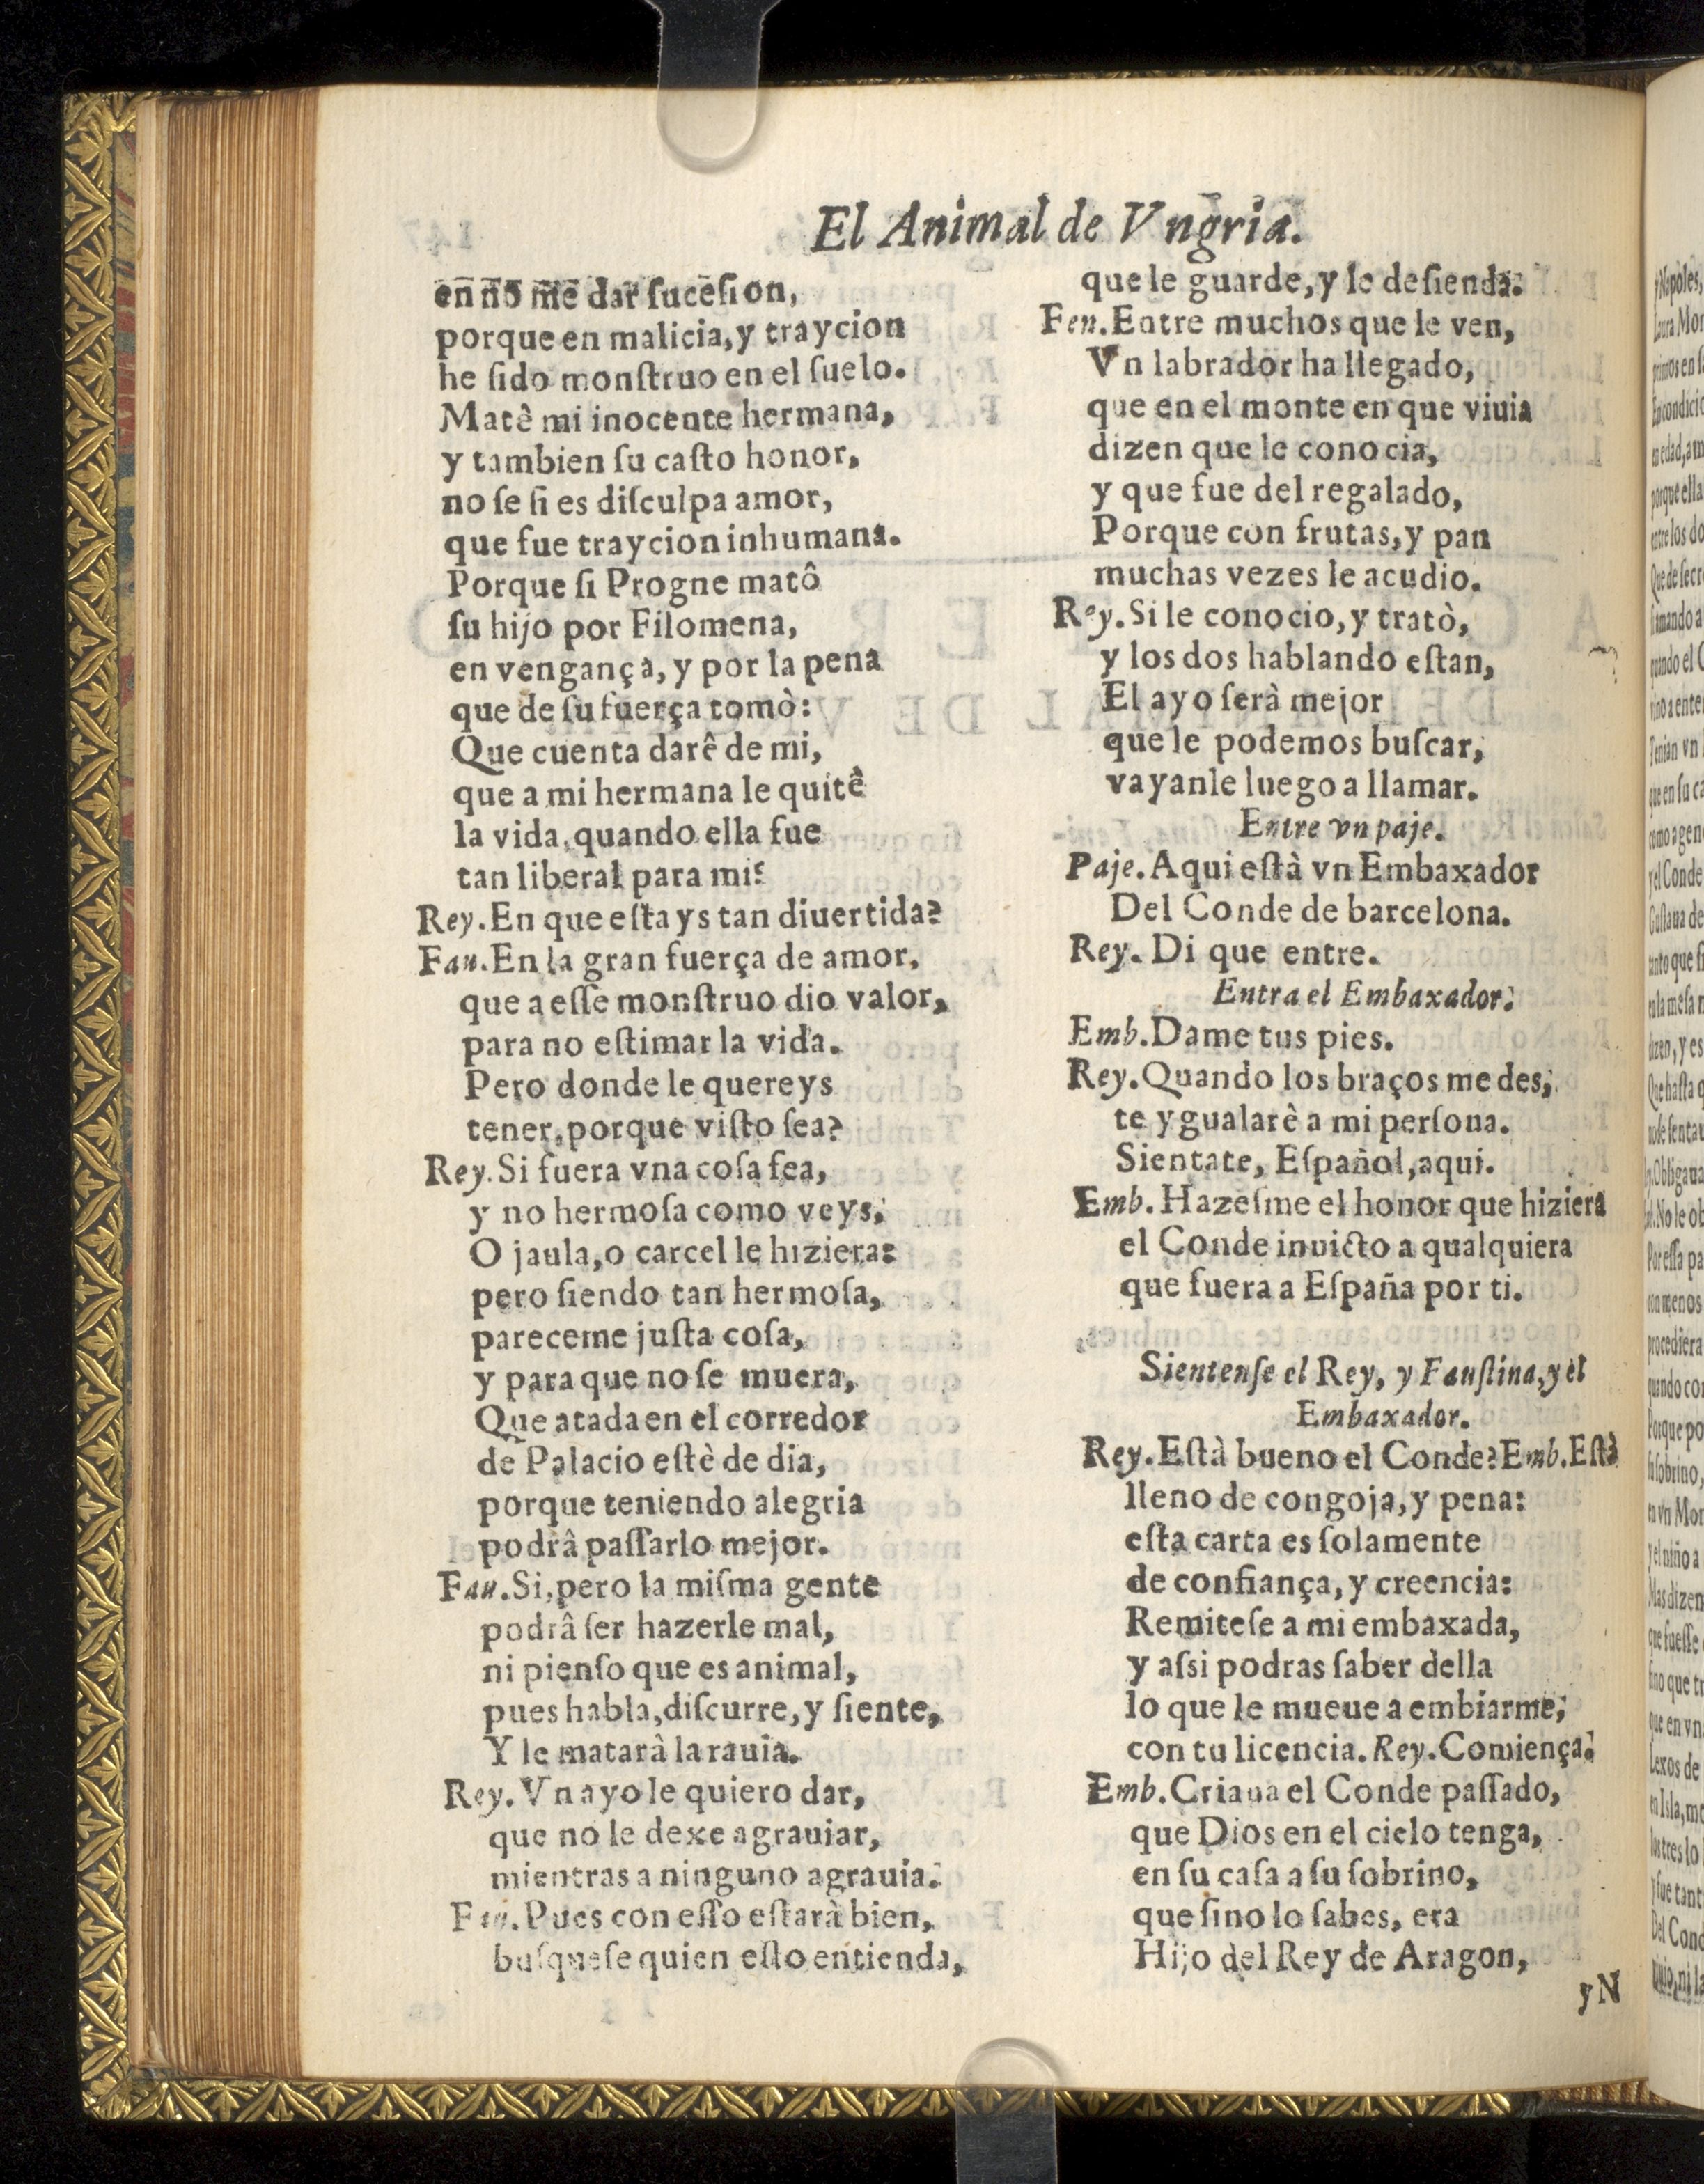 El Animal de Vngria.
en no me dar ſuceſion,
porque en malicia, y traycion
he ſido monſtruo en el ſuelo.
Matê mi inocente hermana,
y tambien ſu caſto honor,
no ſe ſi es diſculpa amor,
que fue traycion inhumana.
Porque ſi Progne matô
ſu hijo por Filomena,
en vengança, y por la pena
que de ſu fuerça tomò:
Que cuenta darê de mi,
que a mi hermana le quitê
la vida, quando ella fue
tan liberal para mi?
Rey. En que eſtays tan diuertida?
Fau. En la gran fuerça de amor,
que a eſſe monſtruo dio valor,
para no eſtimar la vida.
Pero donde le quereys
tener, porque viſto ſea?
Rey. Si fuera vna coſa fea,
y no hermoſa como veys,
O jaula, o carcel le hiziera:
pero ſiendo tan hermoſa,
pareceme juſta coſa,
y para que no ſe muera,
Que atada en el corredor
de Palacio eſtè de dia,
porque teniendo alegria
podrâ paſſarlo mejor.
Fau. Si, pero la miſma gente
podrâ ſer hazerle mal,
ni pienſo que es animal,
pues habla, diſcurre, y ſiente,
Y le matarà la rauia.
Rey. Vn ayo le quiero dar,
que no le dexe agrauiar,
mientras a ninguno agrauia.
Fau. Pues con eſſo eſtarà bien,
buſqueſe quien eſto entienda,
que le guarde, y le defienda.
Fen. Entre muchos que le ven,
Vn labrador ha llegado,
que en el monte en que viuia
dizen que le conocia,
y que fue del regalado,
Porque con frutas, y pan
muchas vezes le acudio.
Rey. Si le conocio, y tratò,
y los dos hablando eſtan,
El ayo ſerà mejor
que le podemos buſcar,
vayanle luego a llamar.
Entre vn paje.
Paje. Aqui eſtà vn Embaxador
Del Conde de barcelona.
Rey. Di que entre.
Entra el Embaxador.
Emb. Dame tus pies.
Rey. Quando los braços me des,
te ygualarè a mi perſona.
Sientate, Eſpañol, aqui.
Emb. Hazeſme el honor que hiziera
el Conde inuicto a qualquiera
que fuera a Eſpaña por ti.
Sientenſe el Rey, y Fauſtina, y el
Embaxador.
Rey. Eſtà bueno el Conde? Emb. Eſtà
lleno de congoja, y pena:
eſta carta es ſolamente
de confiança, y creencia:
Remiteſe a mi embaxada,
y aſsi podras ſaber della
lo que le mueue a embiarme,
con tu licencia. Rey. Comiença.
Emb. Criaua el Conde paſſado,
que Dios en el cielo tenga,
en ſu caſa a ſu ſobrino,
que ſino lo ſabes, era
Hijo del Rey de Aragon,
y N